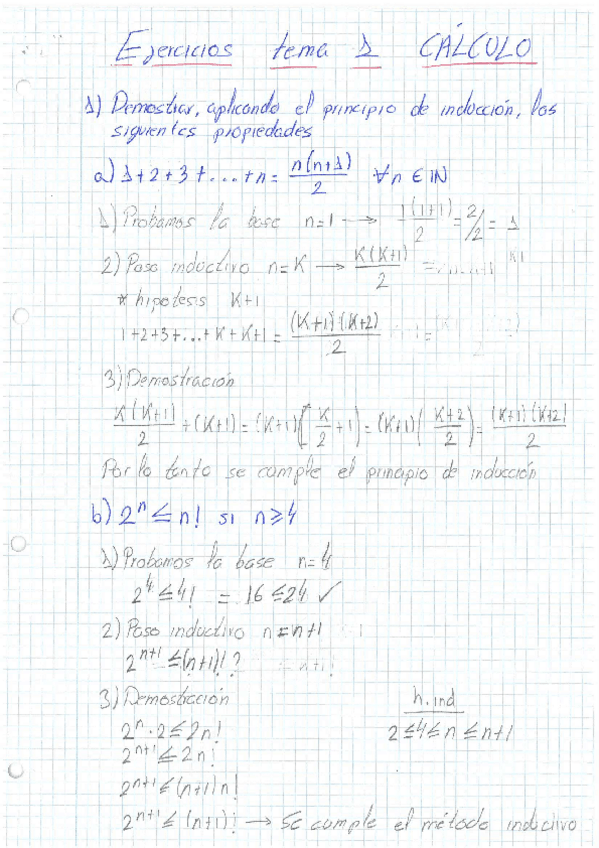 Ejercicios tema 1 CÁLCULO
1) Demostrar, aplicando el principio de inducción, las
siguientes propiedades
a) 1+2+3+...+n = n(n+1)/2 ∀n ∈ IN
1) Probamos la base n=1 → 1(1+1)/2 = 2/2 = 1
2) Paso inductivo n=K → K(K+1)/2
* hipotesis K+1
1+2+3+...+K+K+1 = (K+1)(K+2)/2
3) Demostración
K(K+1)/2 + (K+1) = (K+1)(K/2 + 1) = (K+1)(K+2/2) = (K+1)(K+2)/2
Por lo tanto se cumple el principio de inducción
b) 2ⁿ ≤ n! si n ≥ 4
1) Probamos la base n=4
2⁴ ≤ 4! = 16 ≤ 24 ✓
2) Paso inductivo n=n+1
2ⁿ⁺¹ ≤ (n+1)!?
3) Demostración
h.ind
2ⁿ · 2 ≤ 2n!
2 ≤ 4 ≤ n ≤ n+1
2ⁿ⁺¹ ≤ 2n!
2ⁿ⁺¹ ≤ (n+1)n!
2ⁿ⁺¹ ≤ (n+1)! → Se cumple el método inductivo